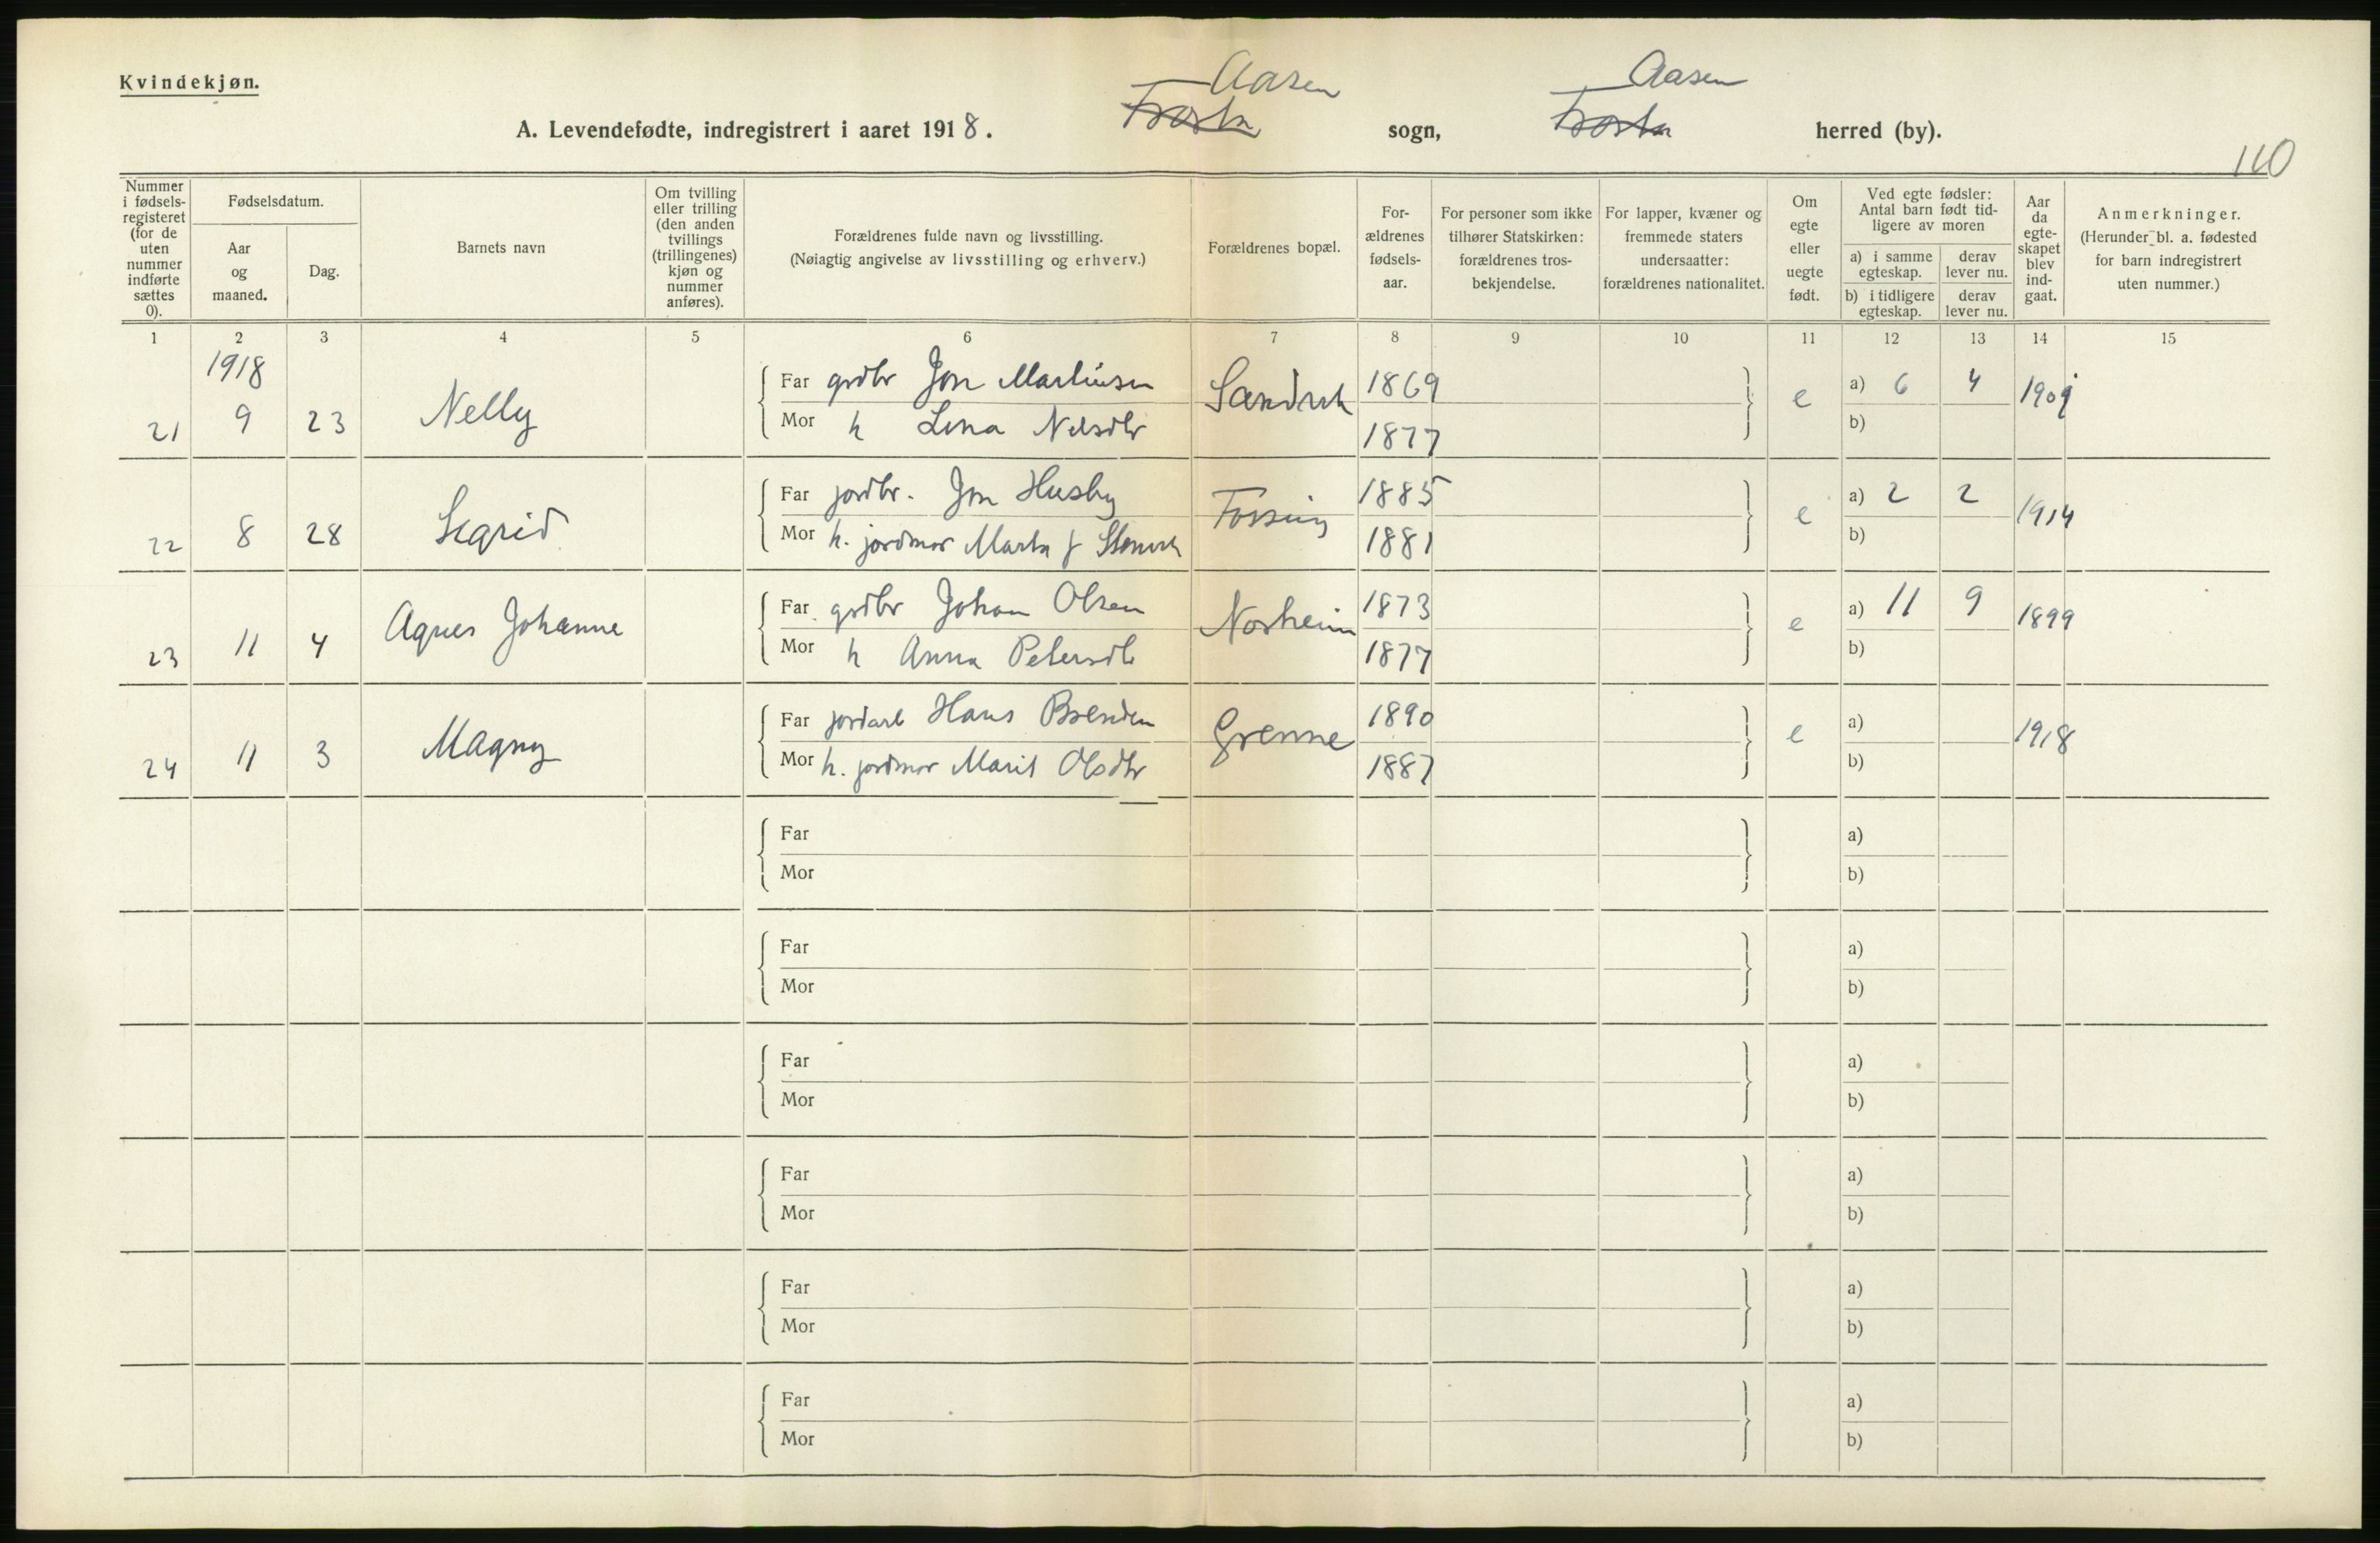 Kvindekjøn.
Aasen Aasen
A. Levendefødte, indregistrert i aaret 1918. Frosta sogn, Frosta herred (by).
110
Nummer i fødsels-registeret (for de uten nummer indførte sættes 0).
Fødselsdatum.
Aar og maaned.
Dag.
Barnets navn
Om tvilling eller trilling (den anden tvillings (trillingenes) kjøn og nummer anføres).
Forældrenes fulde navn og livsstilling.
(Nøiagtig angivelse av livsstilling og erhverv.)
Forældrenes bopæl.
For-ældrenes fødsels-aar.
For personer som ikke tilhører Statskirken: forældrenes tros-bekjendelse.
For lapper, kvæner og fremmede staters undersaatter: forældrenes nationalitet.
Om egte eller uegte født.
Ved egte fødsler: Antal barn født tid-ligere av moren
a) i samme egteskap.
derav lever nu.
b) i tidligere egteskap.
derav lever nu.
Aar da egte-skapet blev ind-gaat.
Anmerkninger.
(Herunder bl. a. fødested for barn indregistrert uten nummer.)
1 2 3 4 5 6 7 8 9 10 11 12 13 14 15
1918
21 9 23 Nelly
Far grdbr Jon Martinsen
Mor h Lina Nelsdtr
1869
1877
e a) 6 4 1909
b)
22 8 28 Sigrid
Far jordbr. Jon Husby
Mor h. jordmor Marta f
Fossing
1885
1881
e a) 2 2 1914
b)
23 11 4 Agnes Johanne
Far grdbr Johan Olsen
Mor h Anna Petersdtr
Norheim
1873
1877
e a) 11 9 1899
b)
24 11 3 Magny
Far jordarb Hans Brenden
Mor h. jordmor Marit Olsdtr
Grenne
1890
1887
e a) 1918
b)
Far a)
Mor b)
Far a)
Mor b)
Far a)
Mor b)
Far a)
Mor b)
Far a)
Mor b)
Far a)
Mor b)